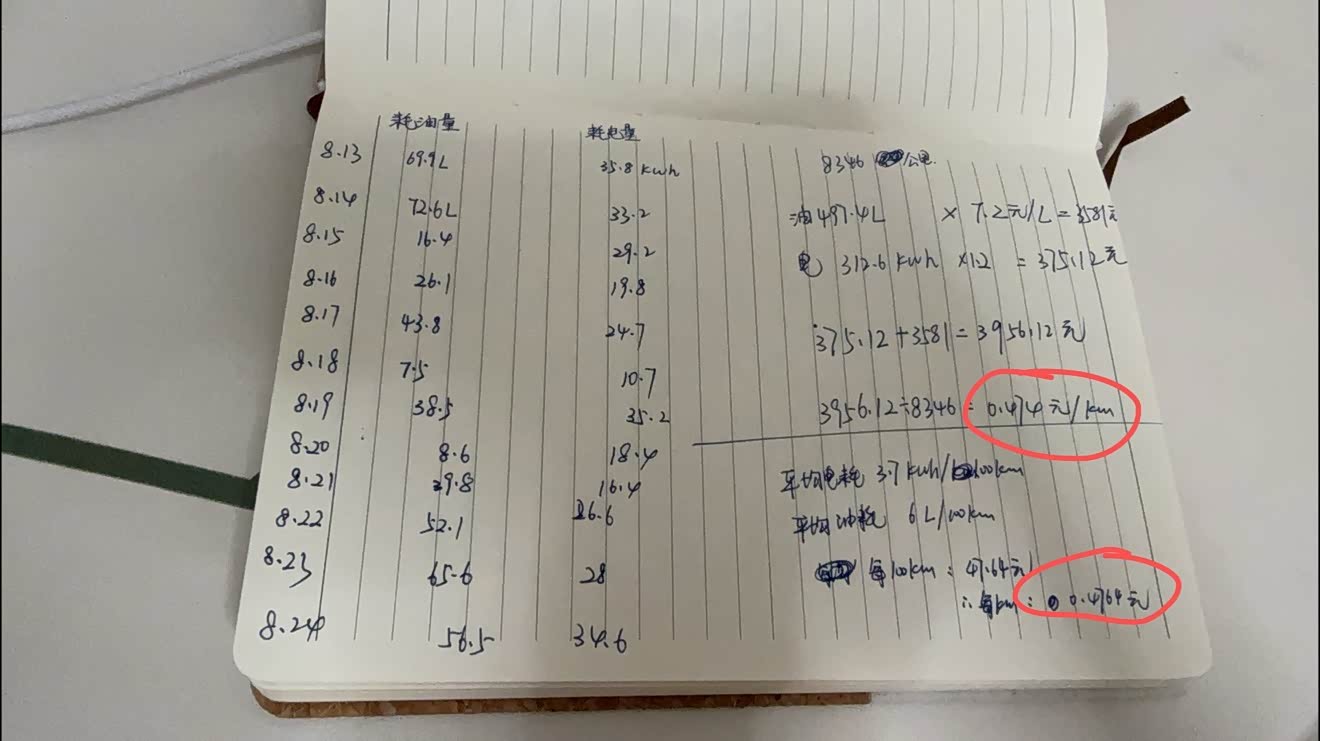 耗油量 耗电量
8.13 69.9L 35.8 kwh
8.14 72.6L 33.2
8.15 16.4 29.2
8.16 26.1 19.8
8.17 43.8 24.7
8.18 7.5 10.7
8.19 38.5 35.2
8.20 8.6 18.4
8.21 39.8 16.4
8.22 52.1 26.6
8.23 65.6 28
8.24 56.5 34.6
8346 公里
油 497.4L × 7.2元/L = 3581元
电 312.6 kwh ×1.2 = 375.12元
375.12+3581=3956.12元
3956.12÷8346= 0.474元/km
平均电耗 3.7 kwh/100km
平均油耗 6L/100km
每100km: 47.64元
∴每km: 0.4764元